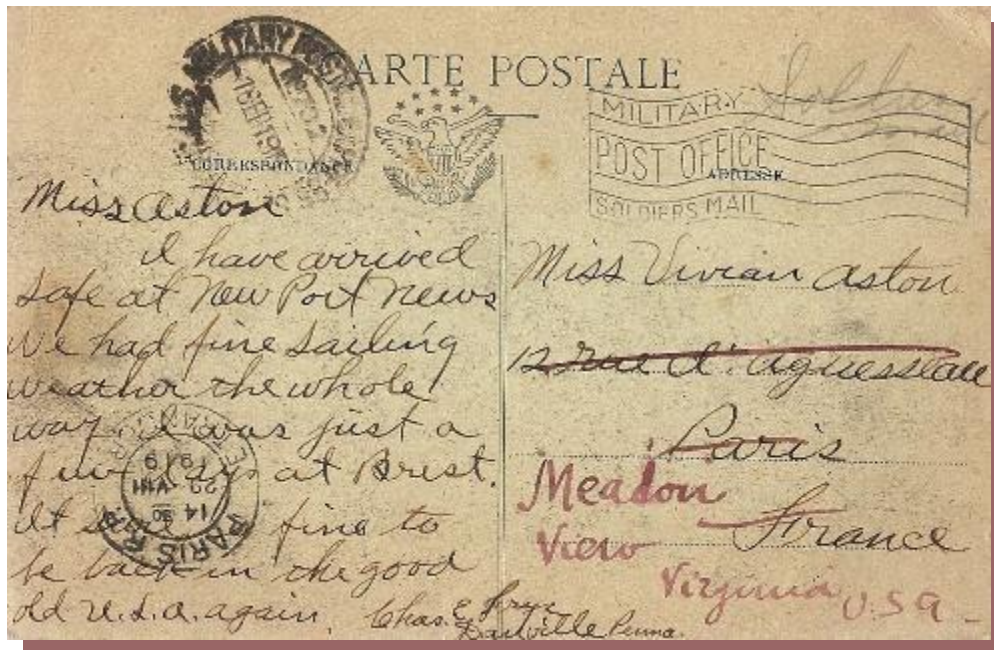 CARTE POSTALE
U.S. MILITARY POST
CORRESPONDANCE
MILITARY
POST OFFICE
ADRESSE
SOLDIERS MAIL
Miss Aston
I have arrived
safe at New Port News
We had fine sailing
weather the whole
way I was just a
few days at Brest.
It fine to
be back in the good
old U.S.A. again.
Chas. E.
Danville Penna.
PARIS R.P.
14 30
29 VIII
1919
Miss Vivian Aston
12 rue d'aguesseau
Paris
France
Meadow
View
Virginia U.S.A